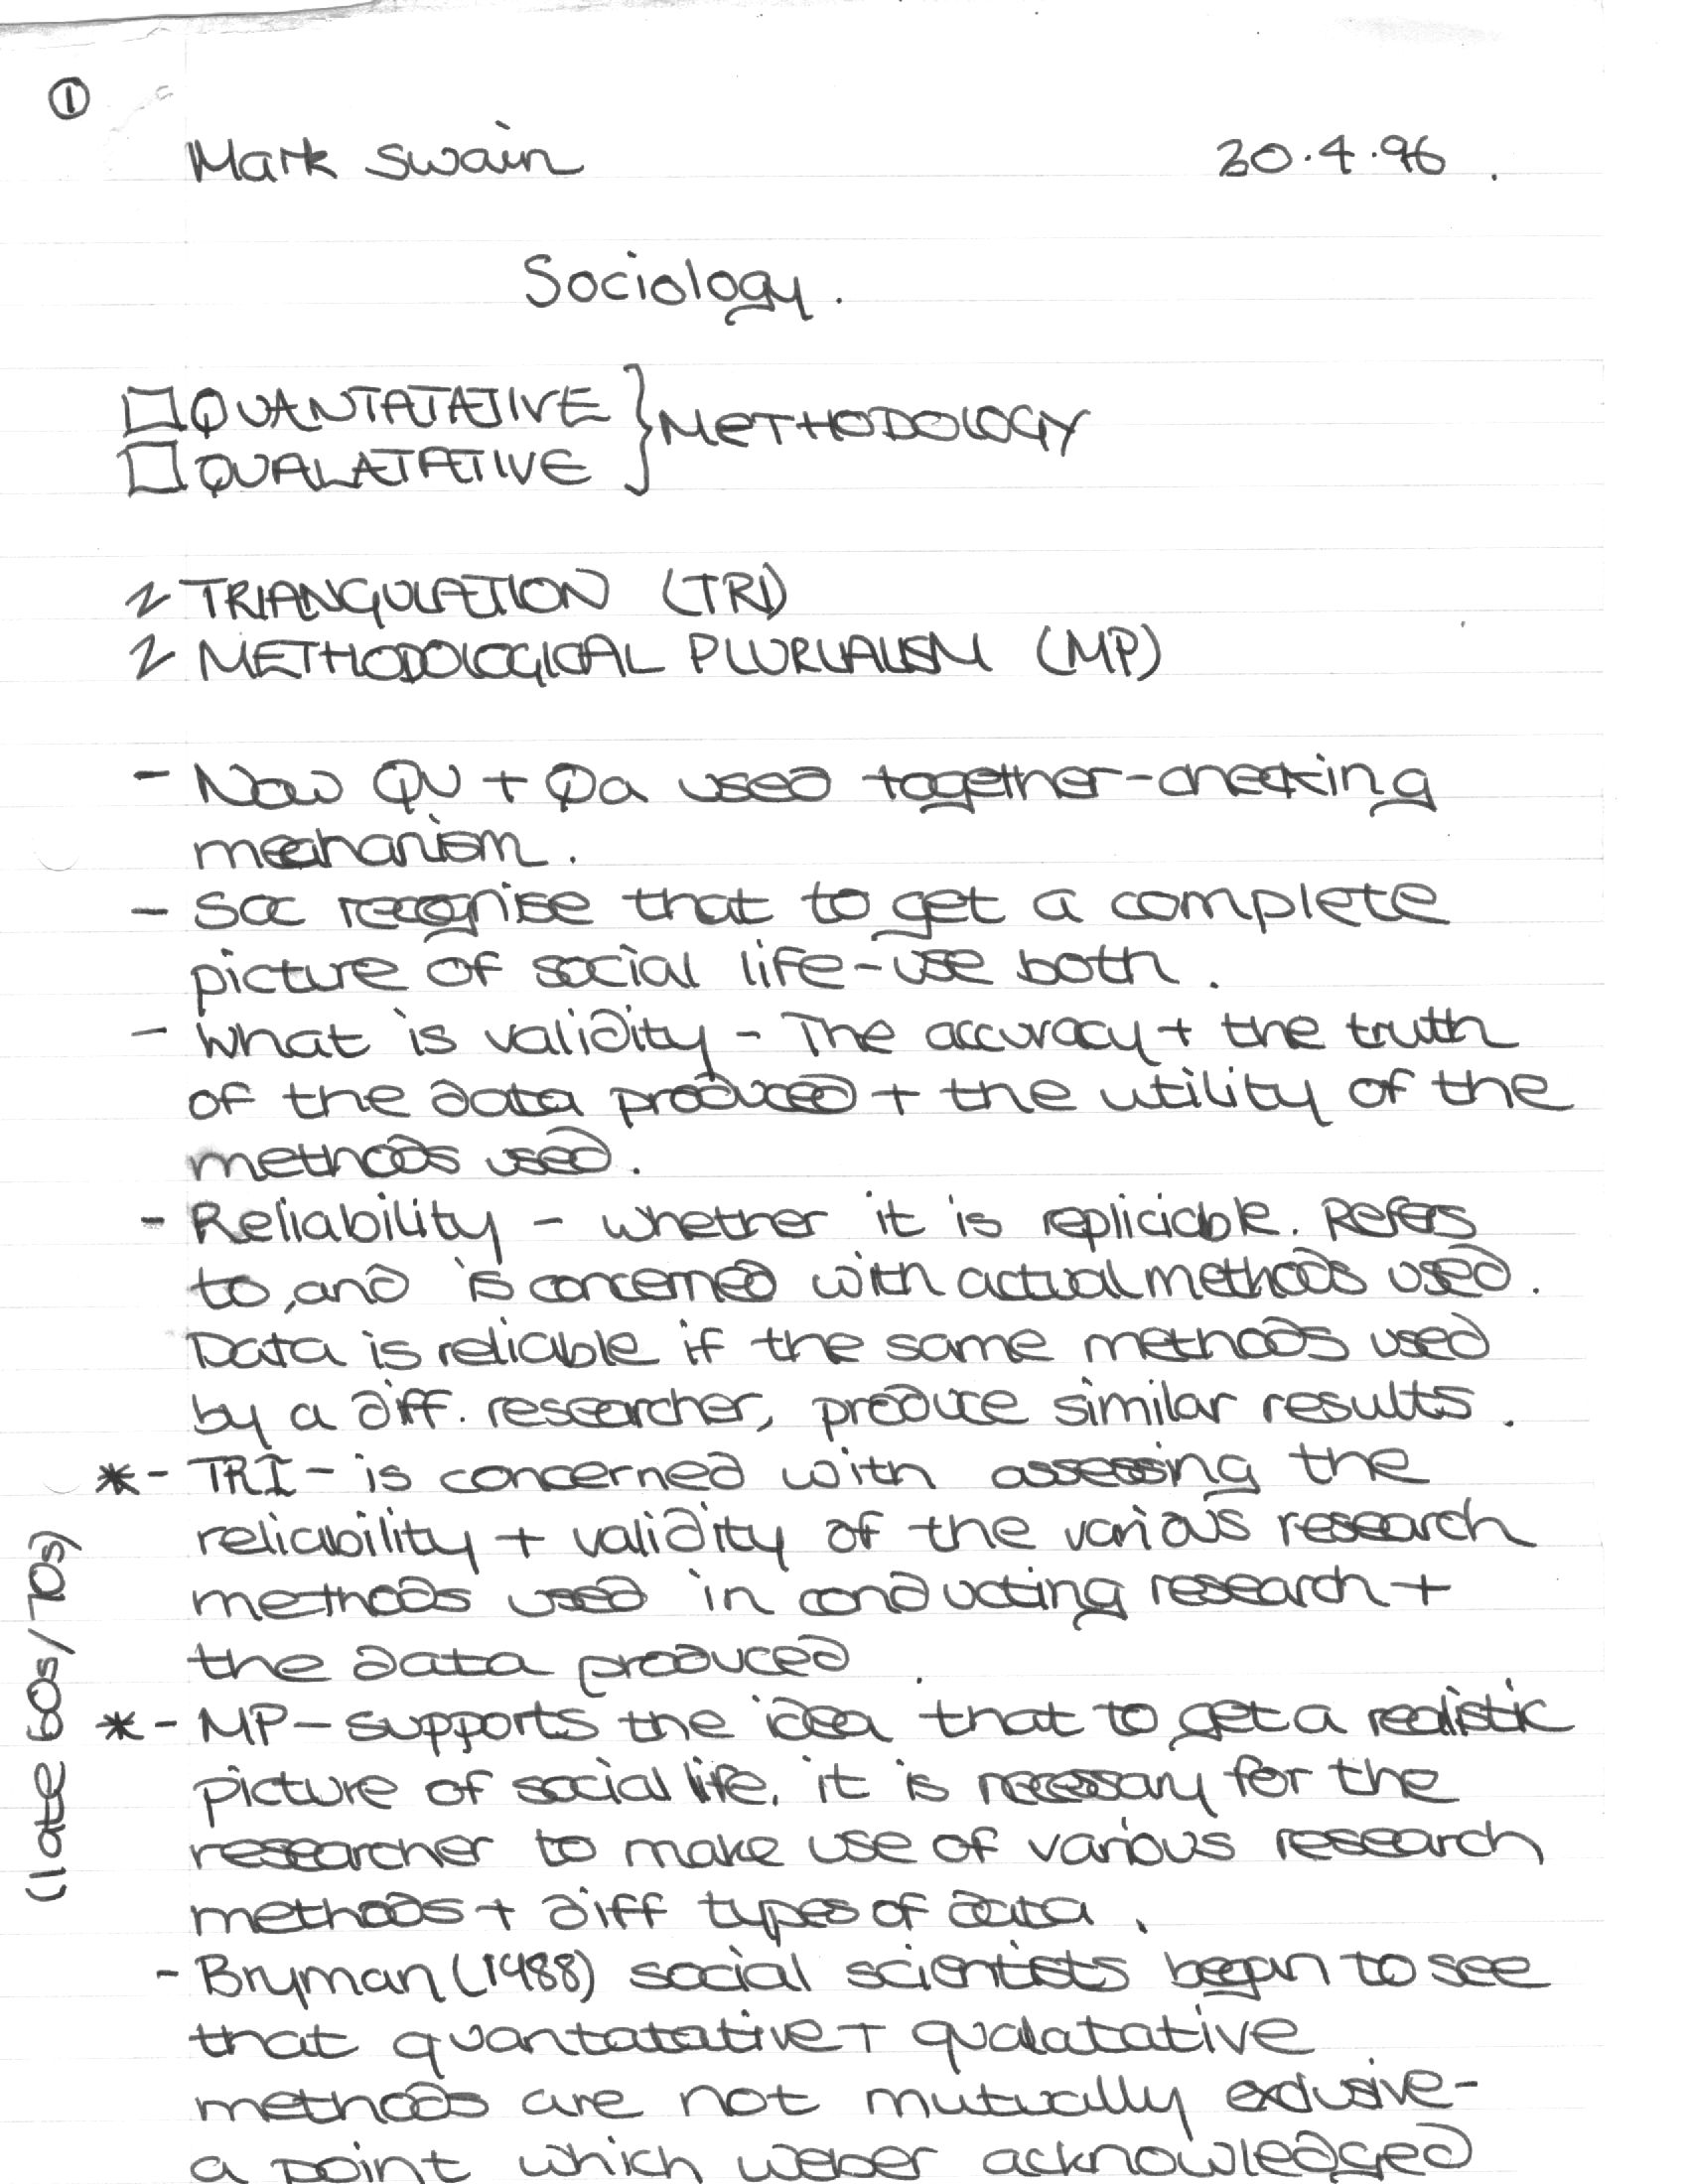 ①
Mark Swain 30.4.96.
Sociology.
QUANTATATIVE } METHODOLOGY
QUALATATIVE
TRIANGULATION (TRI)
METHODOLOGICAL PLURLALISM (MP)
- Now QU + Qa used together-checking
mechanism.
- Soc recognise that to get a complete
picture of social life-use both.
- What is validity - The accuracy + the truth
of the data produced + the utility of the
methods used.
- Reliability - whether it is repliciable. Refers
to, and is concerned with actual methods used.
Data is reliable if the same methods used
by a diff. researcher, produce similar results.
*- TRI - is concerned with assessing the
reliability + validity of the various research
methods used in conducting research +
the data produced.
(late 60s/70s)
*- MP - supports the idea that to get a realistic
picture of social life, it is necessary for the
researcher to make use of various research
methods + diff types of data.
- Bryman (1988) social scientists began to see
that quantatative + qualatative
methods are not mutually exclusive-
a point which weber acknowledged